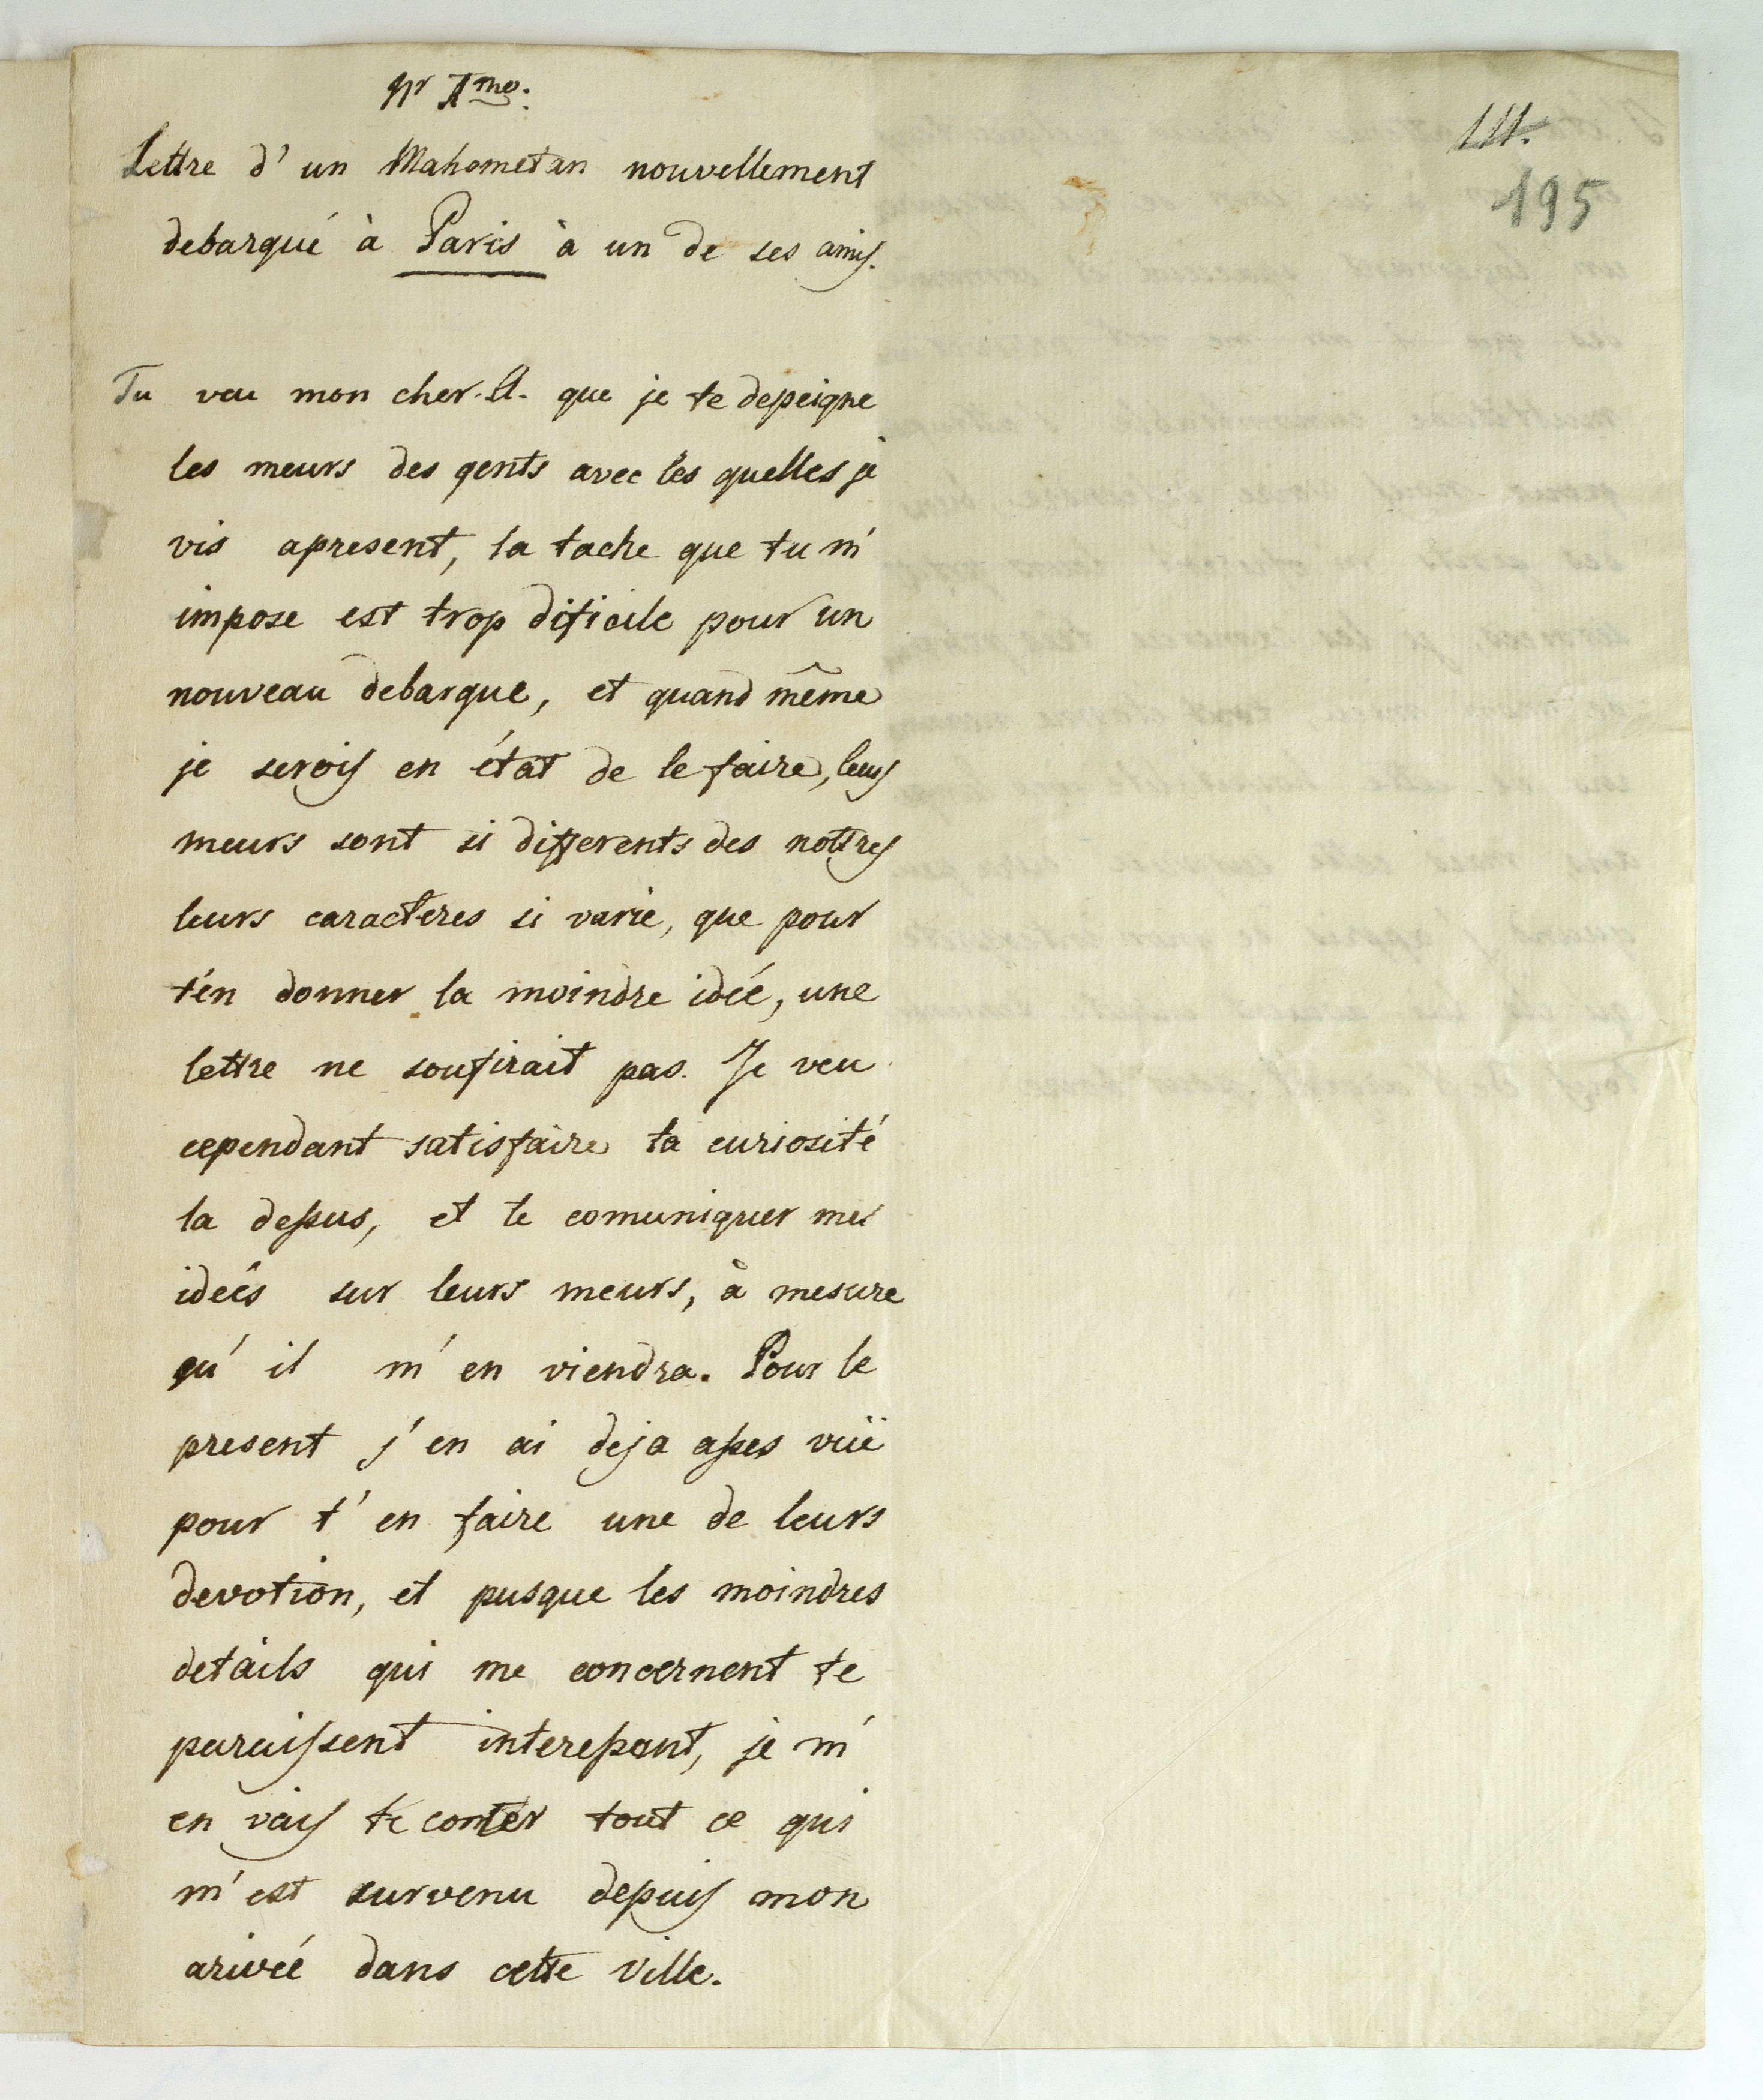 Nr 1mo.
111.
195
Lettre d' un Mahometan nouvellement
debarqué à Paris à un de ses amis.
Tu veu mon cher A. que je te depeigne
les meurs des gents avec les quelles je
vis apresent, la tache que tu m'
impose est trop dificile pour un
nouveau debarque, et quand même
je serois en état de le faire, leurs
meurs sont si differents des nottres
leurs caracteres si varie, que pour
t'en donner la moindre idée, une
lettre ne soufirait pas. Je veu
cependant satisfaire ta curiosité
la dessus, et te comuniquer mes
ideés sur leurs meurs, à mesure
qu' il m' en viendra. Pour le
present j' en ai deja asses vuë
pour t' en faire une de leurs
devotion, et pusque les moindres
details qui me concernent te
paraissent interessant, je m'
en vais te conter tout ce qui
m' est survenu depuis mon
arivée dans cette ville.